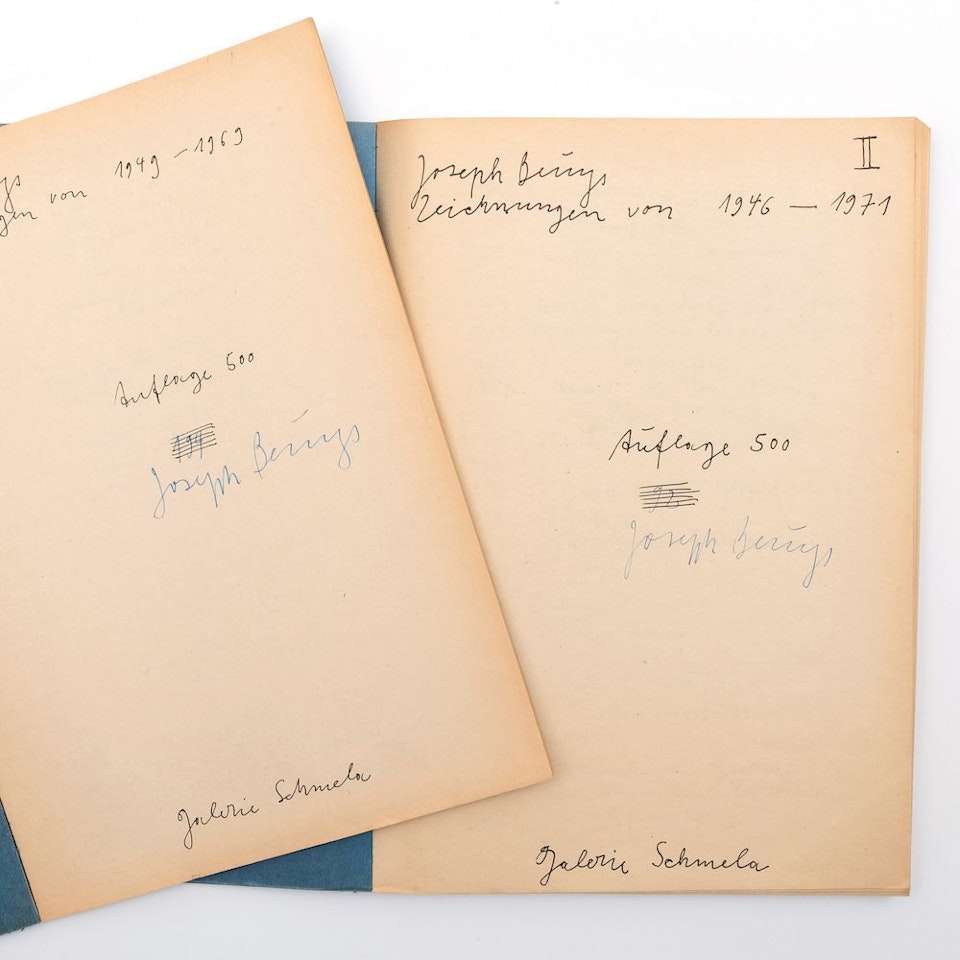 ys
gen von 1949 – 1969
Auflage 500
Joseph Beuys
Galerie Schmela
II
Joseph Beuys
Zeichnungen von 1946 — 1971
Auflage 500
Joseph Beuys
Galerie Schmela